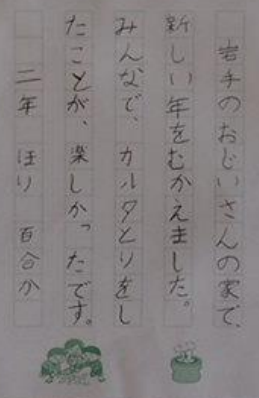 岩手のおじいさんの家で、
新しい年をむかえました。
みんなで、カルタとりをし
たことが、楽しかったです。
二年 ほり 百合か